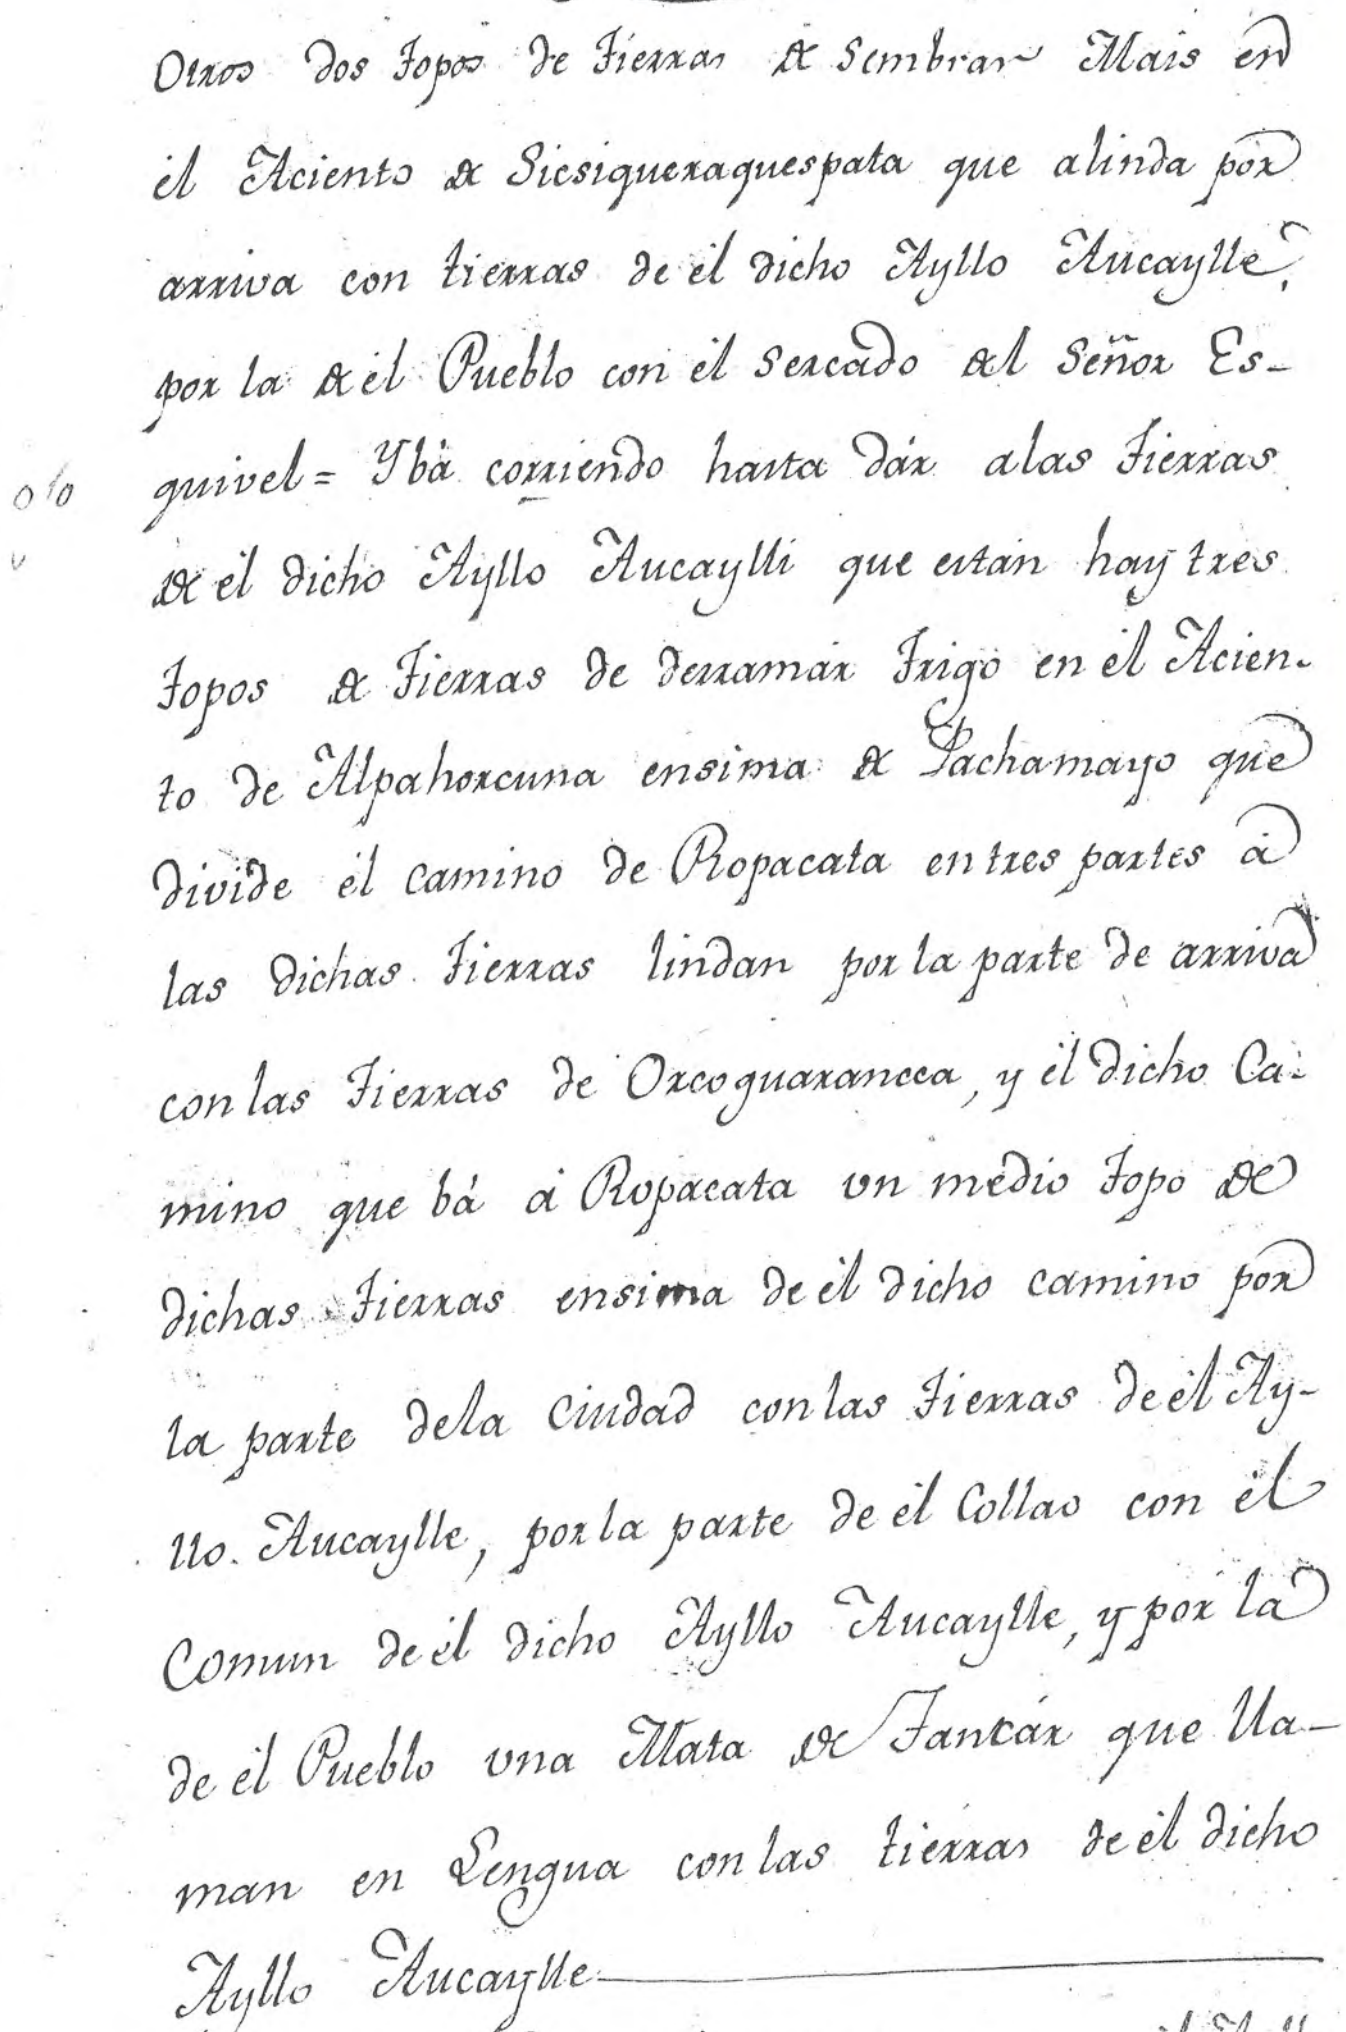 Otros dos Topos de Tierras de Sembrar Mais en
el Aciento de Sicsiqueraquespata que alinda por
arriva con tierras de el dicho Ayllo Aucaylle,
por la de el Pueblo con el Sercado del Señor Es-
quivel = Y bá corriendo hasta dár a las Tierras
de el dicho Ayllo Aucaylli que están hay tres
Topos de Tierras de derramár Trigo en el Acien-
to de Alpahorcuna ensima de Pachamayo que
divide el camino de Ropacata en tres partes á
las dichas Tierras lindan por la parte de arriva
con las Tierras de Orcoguarancca, y el dicho Ca-
mino que bá á Ropacata un medio Topo de
dichas Tierras ensima de el dicho camino por
la parte de la Ciudad con las Tierras de el Ay-
llo. Aucaylle, por la parte de el Collao con el
Comun de el dicho Ayllo Aucaylle, y por la
de el Pueblo una Mata de Tantár que lla-
man en Lengua con las tierras de el dicho
Ayllo Aucaylle